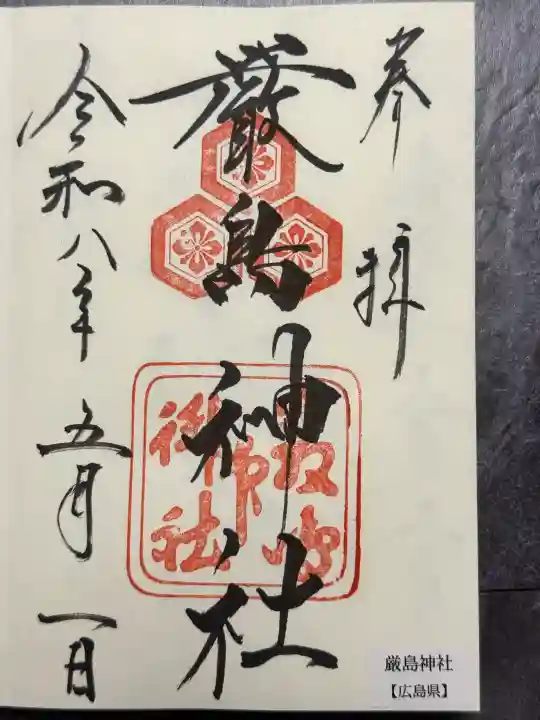 奉拝
嚴島神社
令和八年五月一日
厳島神社
【広島県】